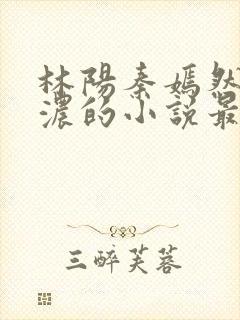 林陽秦嫣然
濃的小說最
三醉芙蓉